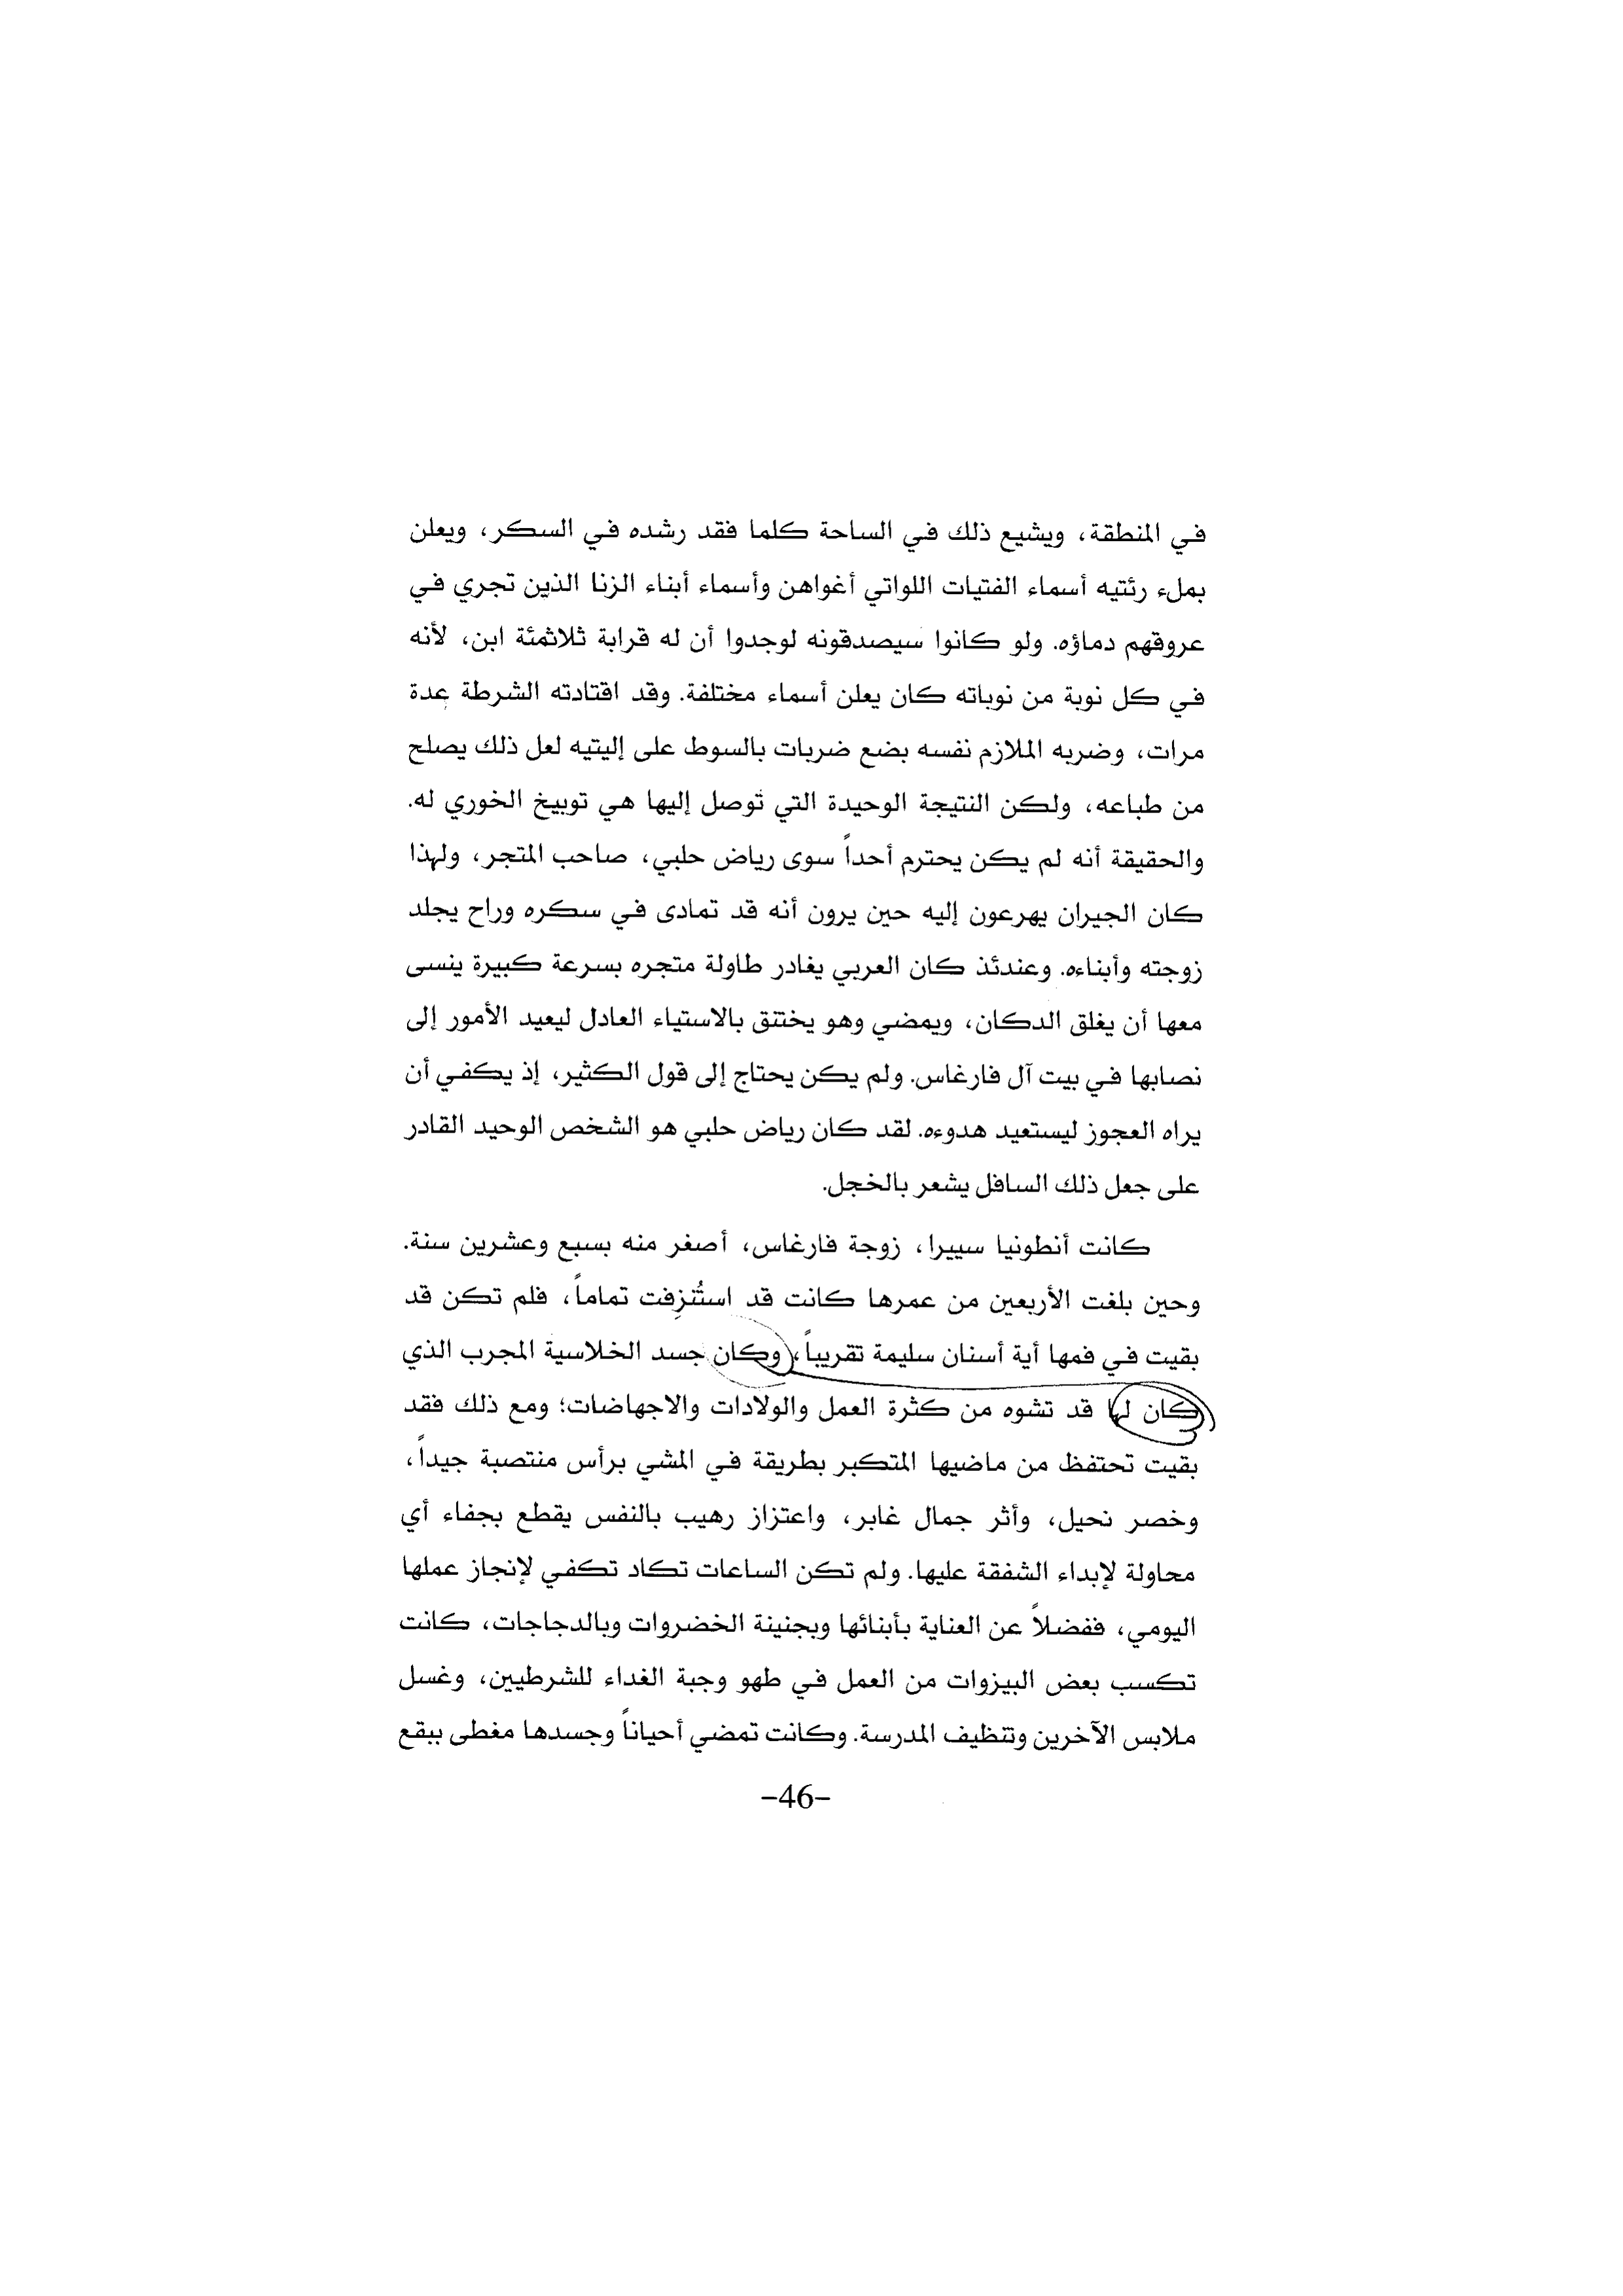 في المنطقة، ويشيع ذلك في الساحة كلما فقد رشده في السكر، ويعلن
بملء رئتيه أسماء الفتيات اللواتي أغواهن وأسماء أبناء الزنا الذين تجري في
عروقهم دماؤه. ولو كانوا سيصدقونه لوجدوا أن له قرابة ثلاثمئة ابن، لأنه
في كل نوبة من نوباته كان يعلن أسماء مختلفة. وقد اقتادته الشرطة عدة
مرات، وضربه الملازم نفسه بضع ضربات بالسوط على إليتيه لعل ذلك يصلح
من طباعه، ولكن النتيجة الوحيدة التي تُوصل إليها هي توبيخ الخوري له.
والحقيقة أنه لم يكن يحترم أحداً سوى رياض حلبي، صاحب المتجر، ولهذا
كان الجيران يهرعون إليه حين يرون أنه قد تمادى في سكره وراح يجلد
زوجته وأبناءه. وعندئذ كان العربي يغادر طاولة متجره بسرعة كبيرة ينسى
معها أن يغلق الدكان، ويمضي وهو يختنق بالاستياء العادل ليعيد الأمور إلى
نصابها في بيت آل فارغاس. ولم يكن يحتاج إلى قول الكثير، إذ يكفي أن
يراه العجوز ليستعيد هدوءه. لقد كان رياض حلبي هو الشخص الوحيد القادر
على جعل ذلك السافل يشعر بالخجل.
كانت أنطونيا سييرا، زوجة فارغاس، أصغر منه بسبع وعشرين سنة.
وحين بلغت الأربعين من عمرها كانت قد استُنزِفت تماماً، فلم تكن قد
بقيت في فمها أية أسنان سليمة تقريباً، وكان جسد الخلاسية المجرب الذي
كان لها قد تشوه من كثرة العمل والولادات والاجهاضات؛ ومع ذلك فقد
بقيت تحتفظ من ماضيها المتكبر بطريقة في المشي برأس منتصبة جيداً،
وخصر نحيل، وأثر جمال غابر، واعتزاز رهيب بالنفس يقطع بجفاء أي
محاولة لإبداء الشفقة عليها. ولم تكن الساعات تكاد تكفي لإنجاز عملها
اليومي، ففضلاً عن العناية بأبنائها وبجنينة الخضروات وبالدجاجات، كانت
تكسب بعض البيزوات من العمل في طهو وجبة الغداء للشرطيين، وغسل
ملابس الآخرين وتنظيف المدرسة. وكانت تمضي أحياناً وجسدها مغطى ببقع
-46-